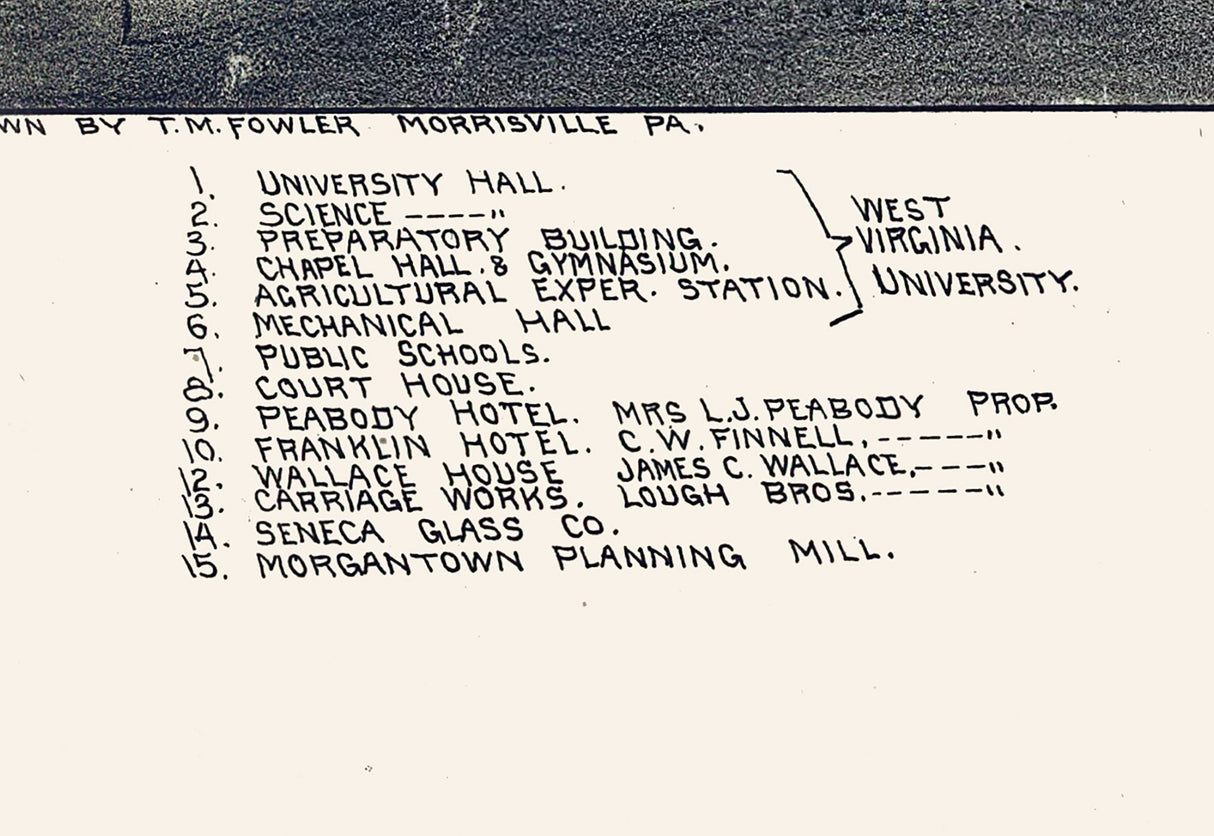 WN BY T.M. FOWLER MORRISVILLE PA.
1. UNIVERSITY HALL.
2. SCIENCE ----"
3. PREPARATORY BUILDING.
4. CHAPEL HALL. & GYMNASIUM.
5. AGRICULTURAL EXPER. STATION.
6. MECHANICAL HALL
WEST
VIRGINIA.
UNIVERSITY.
7. PUBLIC SCHOOLS.
8. COURT HOUSE.
9. PEABODY HOTEL. MRS L.J. PEABODY PROP.
10. FRANKLIN HOTEL. C.W. FINNELL, -----"
12. WALLACE HOUSE JAMES C. WALLACE, ---"
13. CARRIAGE WORKS. LOUGH BROS. -----"
14. SENECA GLASS CO.
15. MORGANTOWN PLANNING MILL.